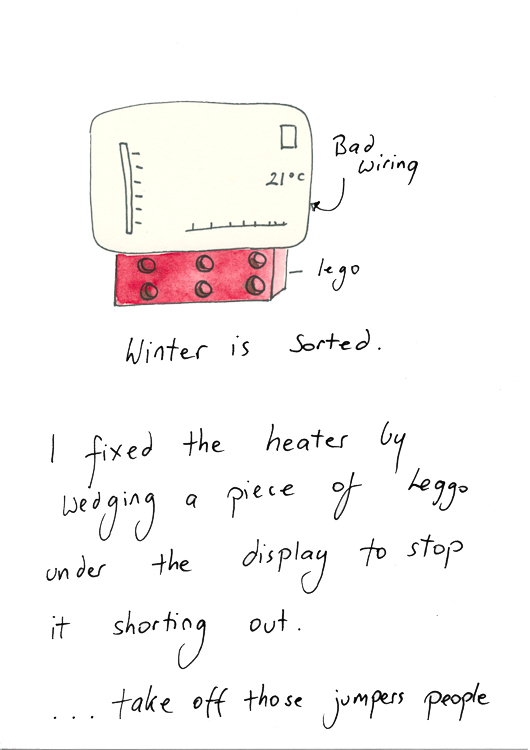 Bad
wiring
21°C
lego
Winter is Sorted.
I fixed the heater by
wedging a piece of Leggo
under the display to stop
it shorting out.
... take off those jumpers people